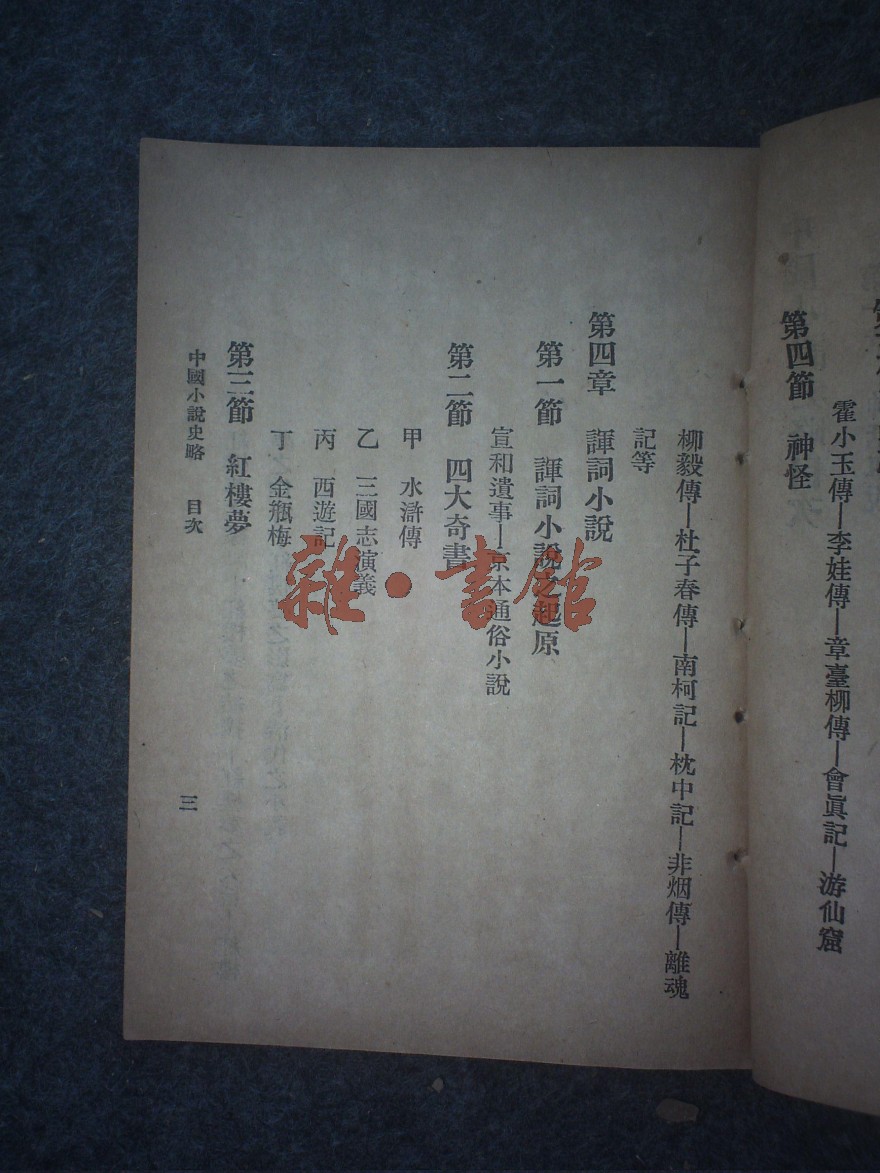 霍小玉傳—李娃傳—章臺柳傳—會眞記—游仙窟
第四節　神怪
柳毅傳—杜子春傳—南柯記—枕中記—非烟傳—離魂
記等
第四章　諢詞小說
第一節　諢詞小說之起原
宣和遺事—京本通俗小說
第二節　四大奇書
甲　水滸傳
乙　三國志演義
丙　西遊記
丁　金瓶梅
第三節　紅樓夢
中國小說史略　目次
三
雜·書館